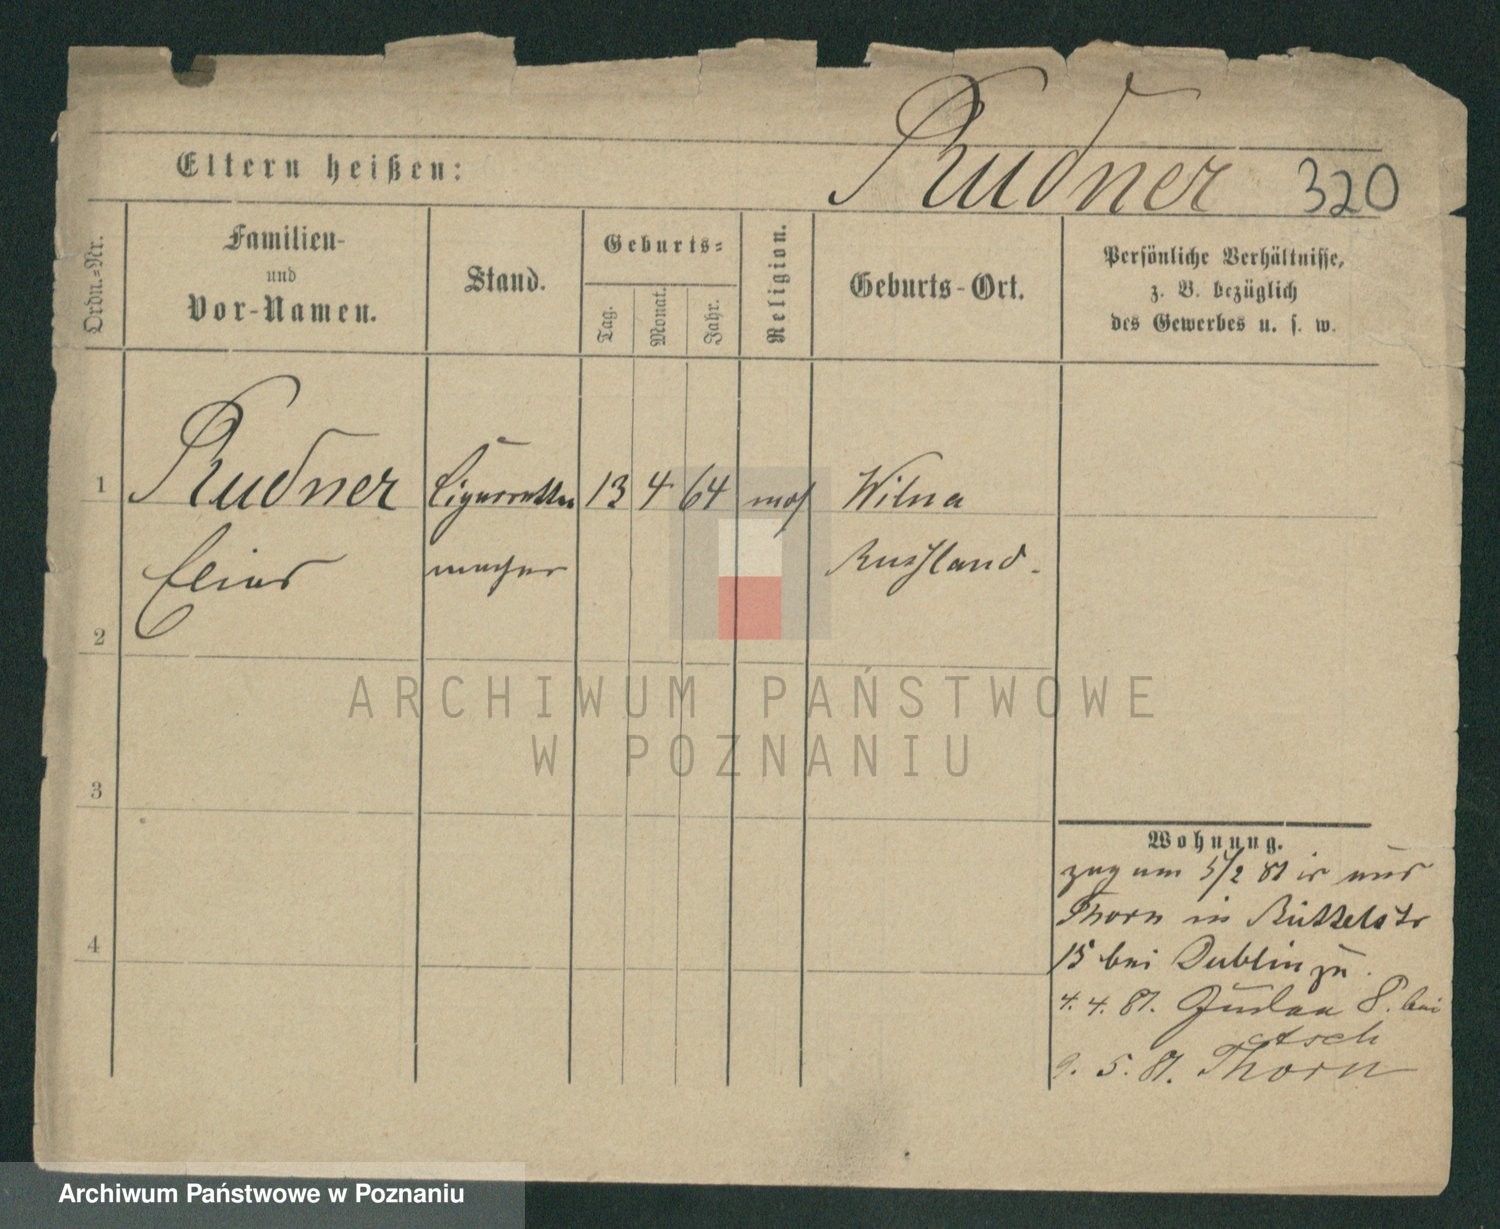 Rudner 320
Eltern heißen:
Ordn.-Nr.
Familien-
und
Vor-Namen.
Stand.
Geburts-
Tag.
Monat.
Jahr.
Religion.
Geburts-Ort.
Persönliche Verhältnisse,
z. B. bezüglich
des Gewerbes u. s. w.
1 Rudner Cigaretten 13 4 64 mos Wilna
Elias macher Russland.
2
3
4
Wohnung.
zug am 5/2 87 aus
Thorn in Büttelstr
15 bei Dublin zu.
4. 4. 87. 8. bei
9. 5. 87. Thorn
ARCHIWUM PAŃSTWOWE
W POZNANIU
Archiwum Państwowe w Poznaniu